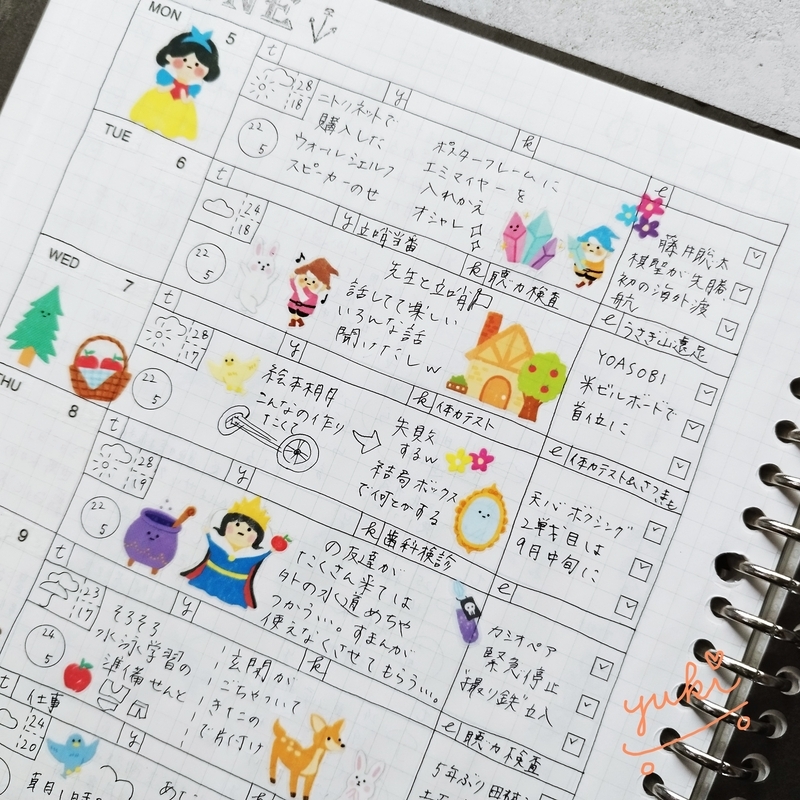 MON
5
t
28
18
22
5
y
ニトリネットで
購入した
ウォールシェルフ
スピーカーのせ
k
ポスターフレームに
エミマイヤーを
入れかえ
オシャレ
e
藤井聡太
棋聖が先勝
初の海外渡
航
TUE
6
t
24
18
22
5
y 立哨当番
先生と立哨
話してて楽しい
いろんな話
聞けたしw
k 聴力検査
e うさぎ山遠足
YOASOBI
米ビルボードで
首位に
WED
7
t
28
17
22
5
y
絵本棚
こんなの作り
たくて
k 体力テスト
失敗
するw
結局ボックス
で何とかする
e 体力テスト&さつまも
天心ボクシング
2戦目は
9月中旬に
THU
8
t
28
19
22
5
y
k 歯科検診
の友達が
たくさん来ては
外の水道めちゃ
つかう…。すまんが
使えなくさせてもらう…。
e
カシオペア
緊急停止
"撮り鉄"立入
9
t
23
17
24
5
そろそろ
水泳学習の
準備せんと
y
玄関が
ごちゃついて
きたの
で片付け
k
e 聴力検査
5年ぶり田植
t 仕事
24
20
y
k
yuki